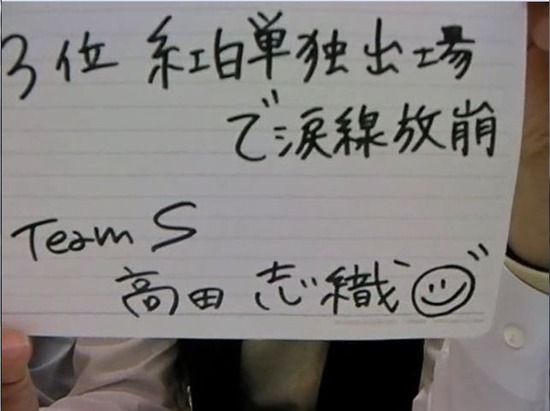 3位 紅白単独出場
で涙線放崩
Team S
高田 志織